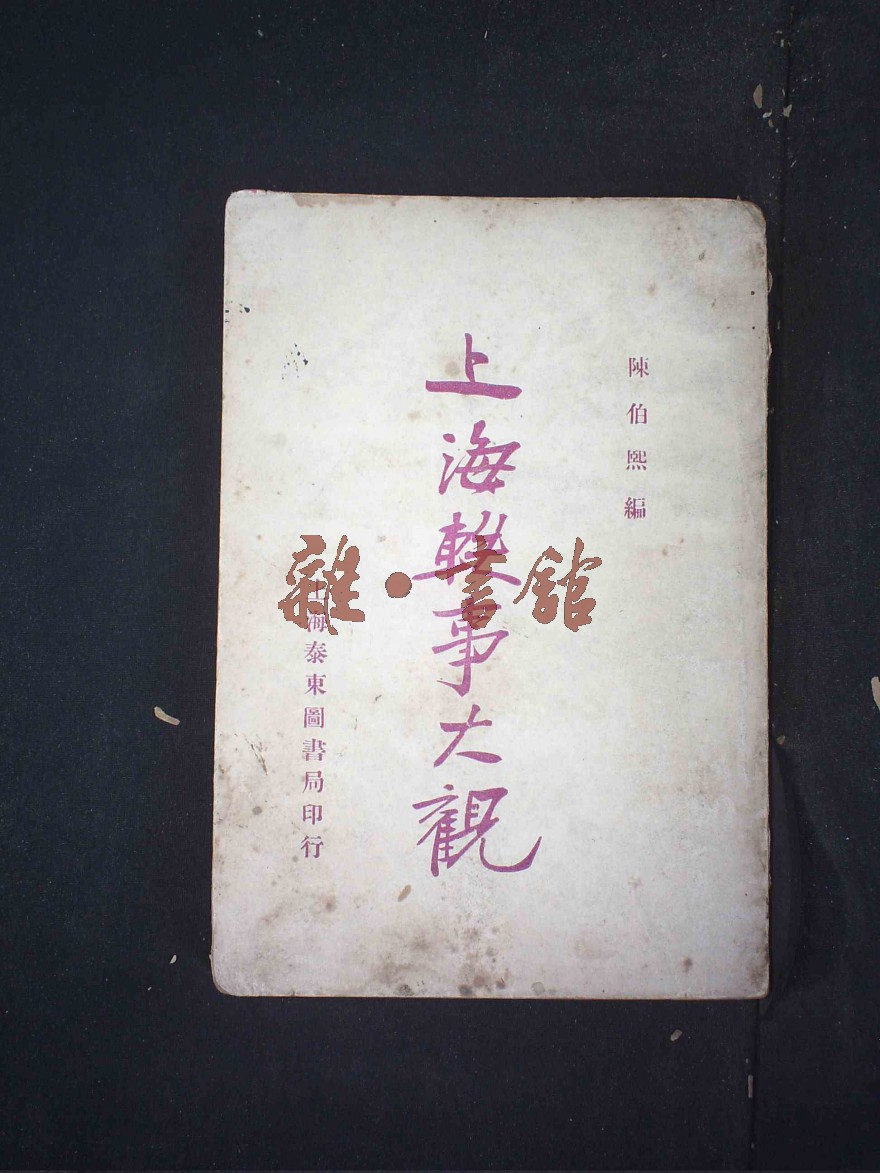 陳伯熙編
上海軼事大觀
上海泰東圖書局印行
雜•書館